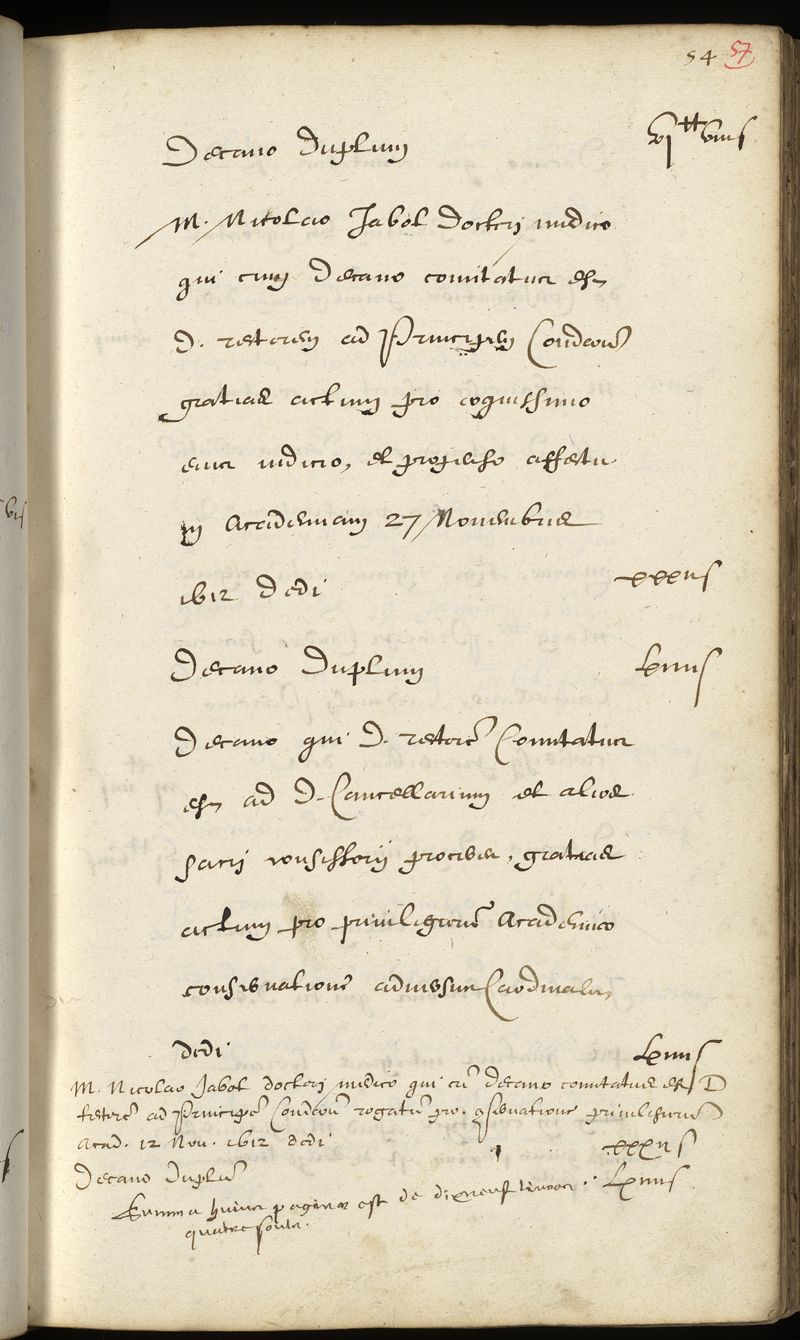 54 57
Decano duplum vi^tt viiis
M. Nicolao Jabot doctori medico
qui cum Decano comitatus est
D. rectorem ad Principem Condaeū
gratias actum pro aequissimo
eius iudicio, et propenso affectu
in Academiam 27 Novembris
1612 dedi xxxiis
Decano duplum Lxiiiis
Decano qui D. rectorē Comitatus
est ad D. Cancellarium et alios
sacri consistorii proceres, gratias
actum pro privilegiorū Academico
conservatione adversus Cardinales
dedi Lxiiiis
M. Nicolao Jabot doctori medico qui cū Decano comitatus est D
rectorē ad Principē Condaeū rogatū pro conservatione privilegiorū
Acad. 12 Nov. 1612 dedi xxxiis
Decano duplū Lxiiiis
Summa huius paginae est de dixneuf livres
quatre soulz.